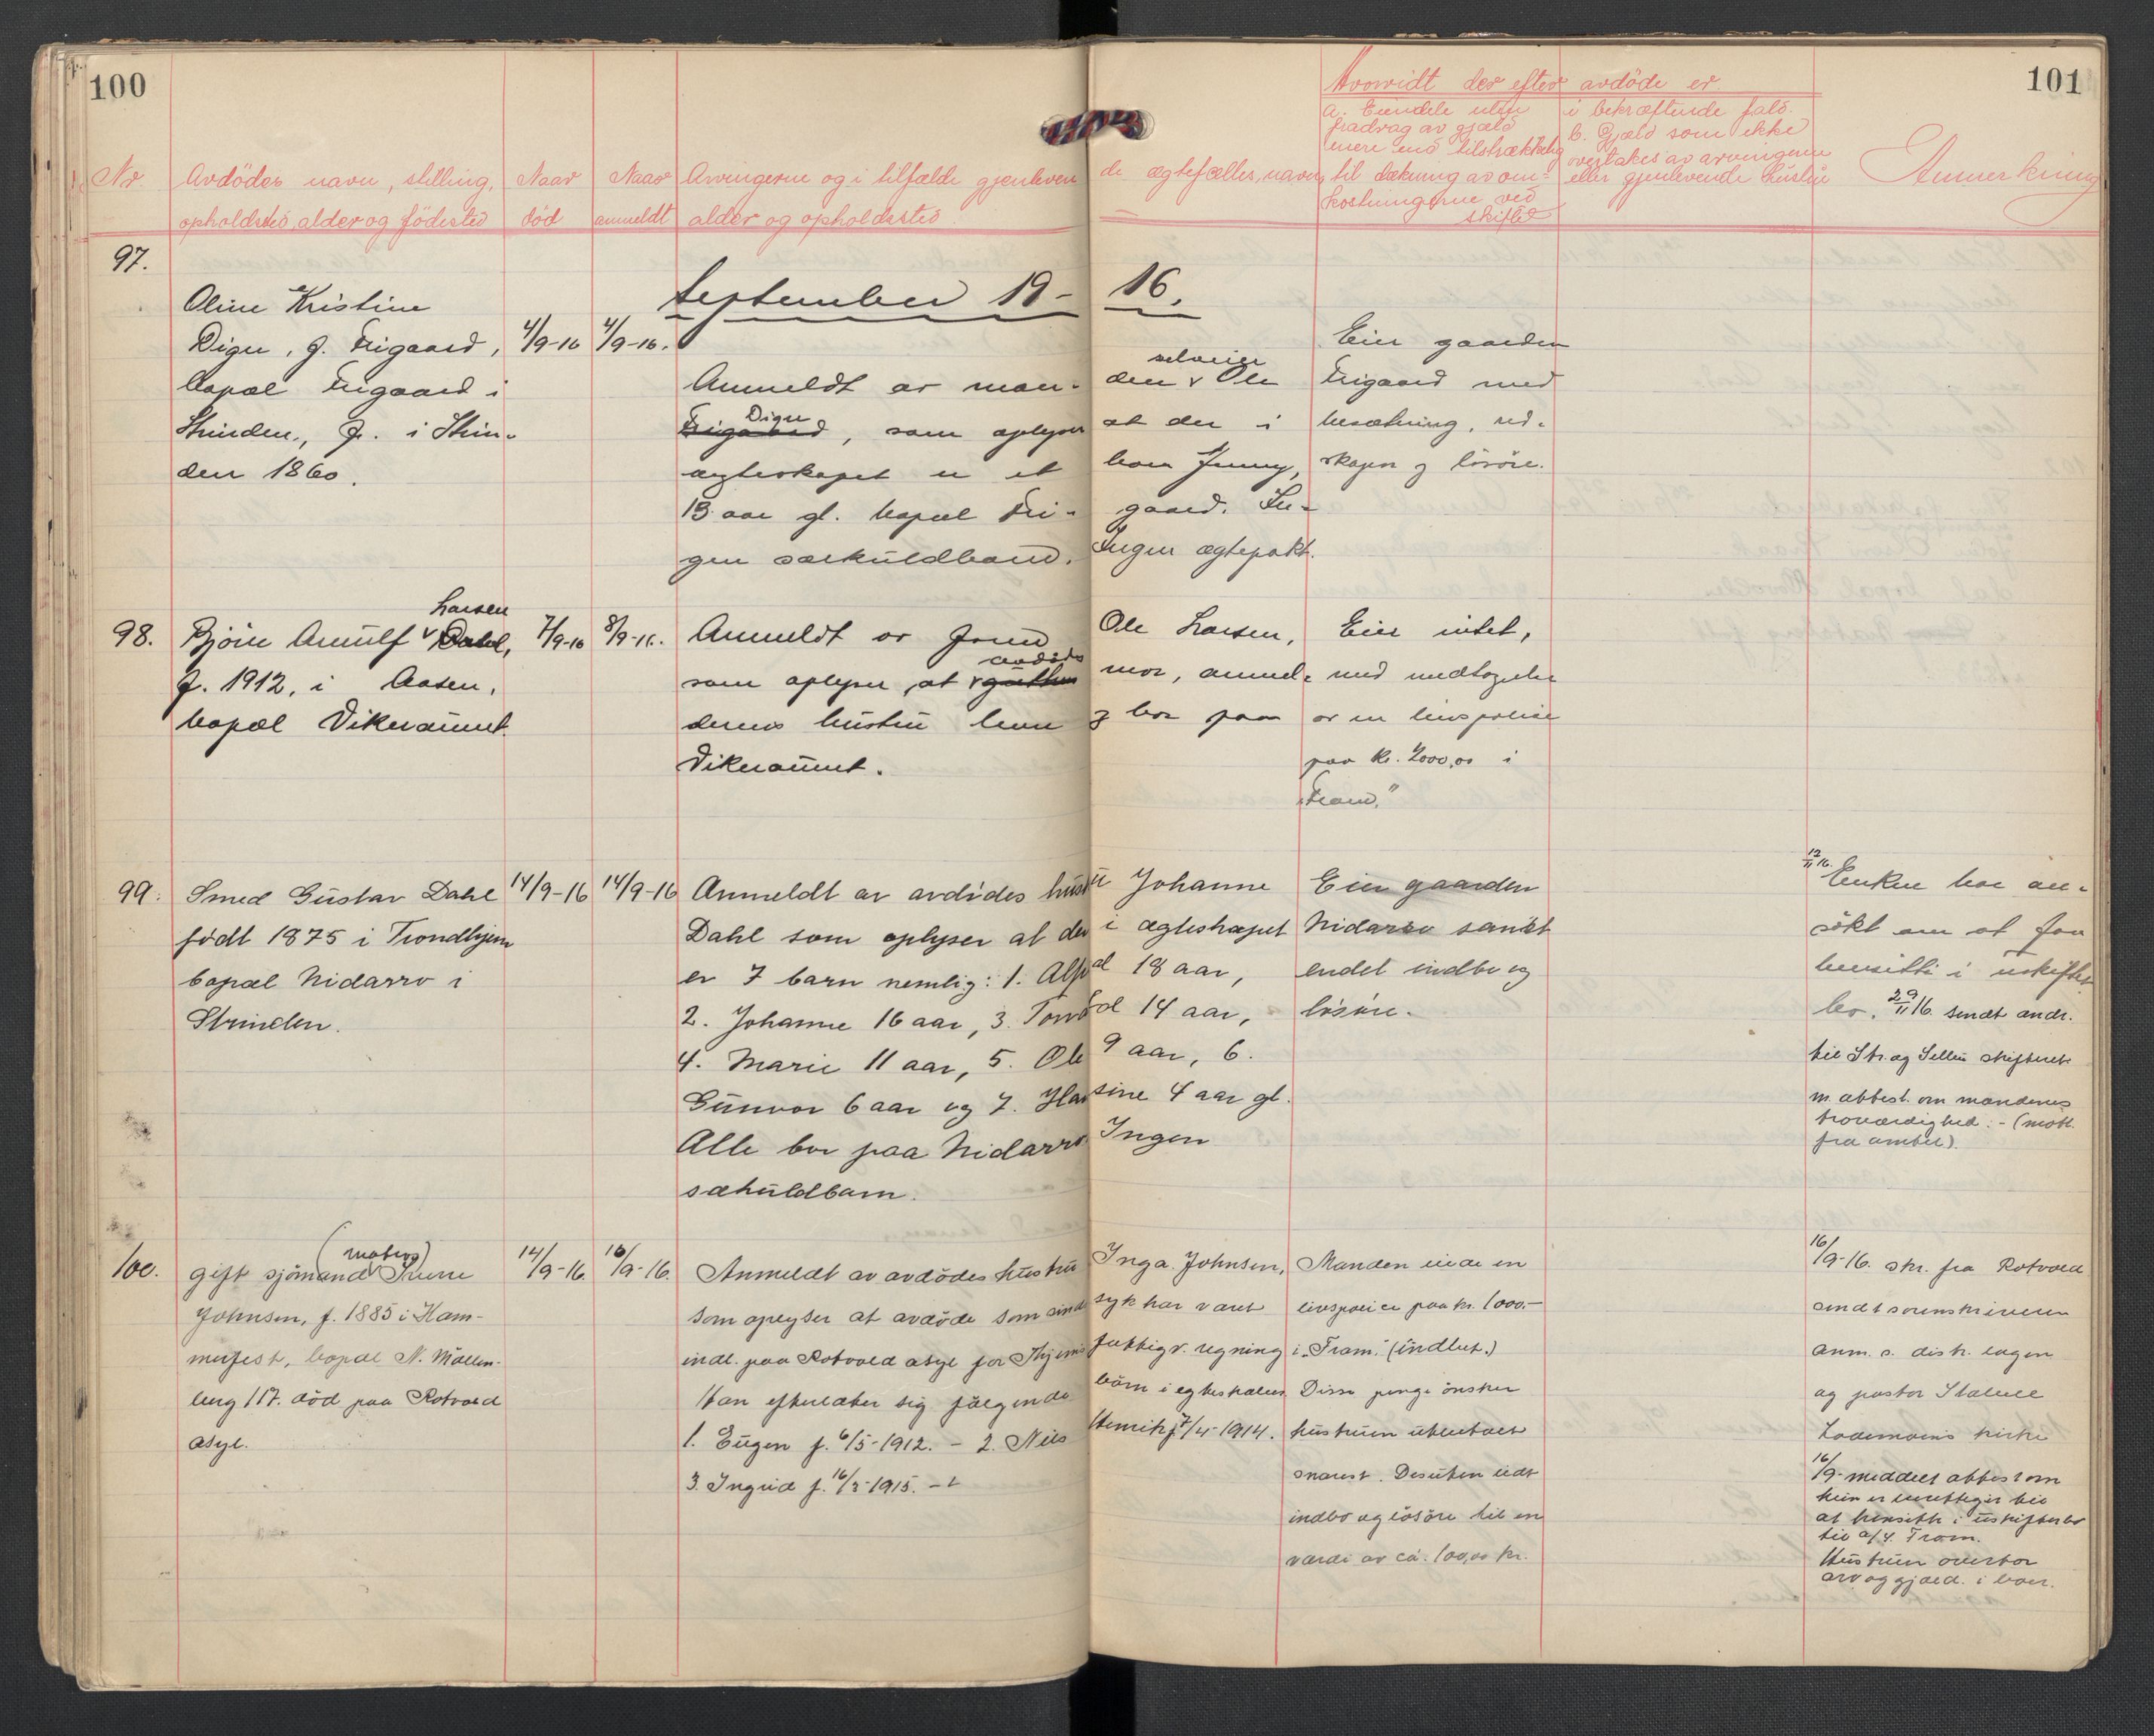 100
101
Hvorvidt der efter avdöde er
a. Eiendele uten
fradrag av gjæld
mere end tilstrækkelig
til dækning av om-
kostningerne ved
skiftet
i bekræftende fald.
b. Gjæld som ikke
overtakes av arvingerne
eller gjenlevende hustru
Anmerkning
Nr
Avdödes navn, stilling,
opholdssted, alder og födested
Naar
död
Naar
anmeldt
Arvingerne og i tilfælde gjenleven de ægtefælles, navn,
alder og opholdssted.
September 19- 16.
97.
Oline Kristine
Digre, g. Frigaard,
bopæl Frigaard i
Strinden, f. i Strin-
den 1860.
4/9-16
4/9-16.
Anmeldt av man- den v selveier Ole
Frigaard Digre, som oplyser at der i
ægteskapet er et barn Jenny,
13 aar gl. bopæl Fri- gaard. In-
gen særkuldbarn. Ingen ægtepakt.
Eier gaarden
Frigaard med
besætning, red-
skaper og lösöre.
98.
Björn Arnulf v Larsen Dahl,
f. 1912, i Aasen,
bopæl Vikeraunet.
7/9-16
8/9-16.
Anmeldt av Ole Larsen,
som oplyser, at v avdödes mor, anmel-
derens hustru lever og bor paa
Vikeraunet.
Eier intet,
med undtagelse
av en livspolice
paa kr. 2000,00 i
"Fram."
99.
Smed Gustav Dahl
födt 1875 i Trondhjem
bopæl Nidarvo i
Strinden.
14/9-16
14/9-16
Anmeldt av avdödes hustru Johanne
Dahl som oplyser at der i ægteskapet
er 7 barn nemlig: 1. 18 aar,
2. Johanne 16 aar, 3. 14 aar,
4. Marie 11 aar, 5. Ole 9 aar, 6.
Gunvor 6 aar og 7. 4 aar gl.
Alle bor paa Nidarvo Ingen
særkuldbarn.
Eier gaarden
Nidarvo samt
endel indbo og
lösöre.
12/11 16. Enken har an-
sökt om at faa
hensitte i uskiftet
bo. 29/11 16. sendt andr.
til Str. og Selbu skifteret
m. attest om mandens
troværdighed. - (mott.
fra amtet).
100.
gift sjömand (matros)
Johnsen, f. 1885 i Ham-
merfest, bopæl N. Möllen-
berg 117. död paa Rotvold
asyl.
14/9-16.
16/9-16.
Anmeldt av avdödes hustru Inga Johnsen,
som oplyser at avdöde som sind syk har været
indl. paa Rotvold asyl for Thjems fattigv. regning
Han efterlater sig fölgende börn i egteskabet
1. Eugen f. 6/5-1912. - 2. Nils Henrik f 7/4-1914.
3. Ingrid f. 16/ 1915. -
Manden eiede en
livspolice paa kr. 1000.-
i "Fram." (indbet.)
Disse penge önsker
hustruen utbetalt
snarest. Desuten lidt
indbo og lösöre til en
værdi av ca. 100,00 kr.
16/9-16. skr. fra Rotvold
sendt sorenskriveren
anm. s. distr. lægen
og pastor
Lademoens kirke
16/9- meddelt attest om
hun er berettiget til
at hensitte i uskiftet bo
til a/s. Fram.
Hustruen overtar
arv og gjæld i boet.